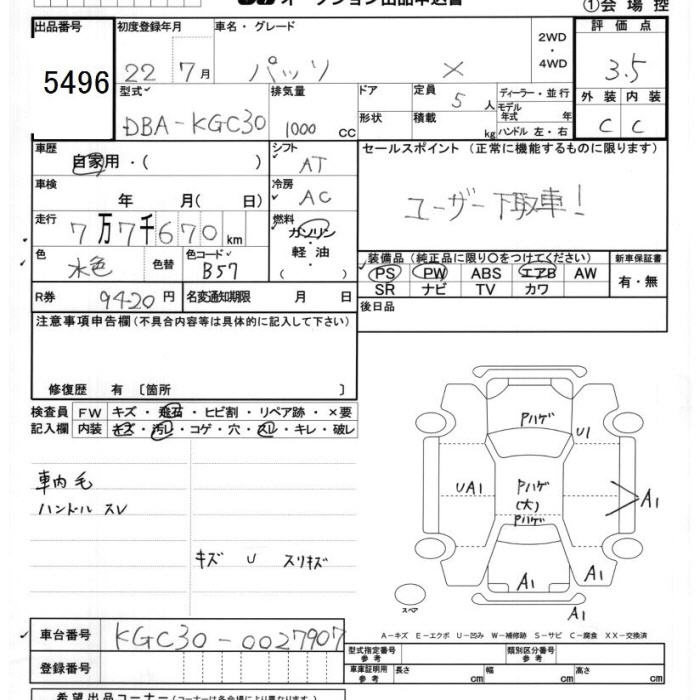 オークション出品申込書 ①会場控
出品番号 5496
初度登録年月 22 7月
車名・グレード パッソ X
2WD・4WD
評価点 3.5
外装 内装 C C
型式 DBA-KGC30
排気量 1000 cc
ドア 形状
定員 5人
積載 kg
ディーラー・並行
モデル年式 年
ハンドル 左・右
車歴 自家用・( )
シフト AT
車検 年 月( 日)
冷房 AC
走行 7万7千670km
燃料 ガソリン・軽油・( )
色 水色 色替 色コード B57
R券 9420円 名変通知期限 月 日
セールスポイント(正常に機能するものに限ります)
ユーザー下取車!
装備品(純正品に限り〇をつけてください) 新車保証書
PS PW ABS エアB AW 有・無
SR ナビ TV カワ
後日品
注意事項申告欄(不具合内容等は具体的に記入して下さい)
修復歴 有〔箇所 〕
検査員記入欄
FW キズ・飛石・ヒビ割・リペア跡・×要
内装 キズ・汚レ・コゲ・穴・スレ・キレ・破レ
車内毛
ハンドル スレ
キズ U スリキズ
Pハゲ
U1
UA1
Pハゲ
(大)
Pハゲ
A1
A1
A1
A1
スペア
A-キズ E-エクボ U-凹み W-補修跡 S-サビ C-腐食 XX-交換済
車台番号 KGC30-0027907
登録番号
型式指定番号 参考
類別区分番号 参考
車庫証明用 参考 長さ cm 幅 cm 高さ cm
希望出品コーナー(コーナーは各会場により異なります。)